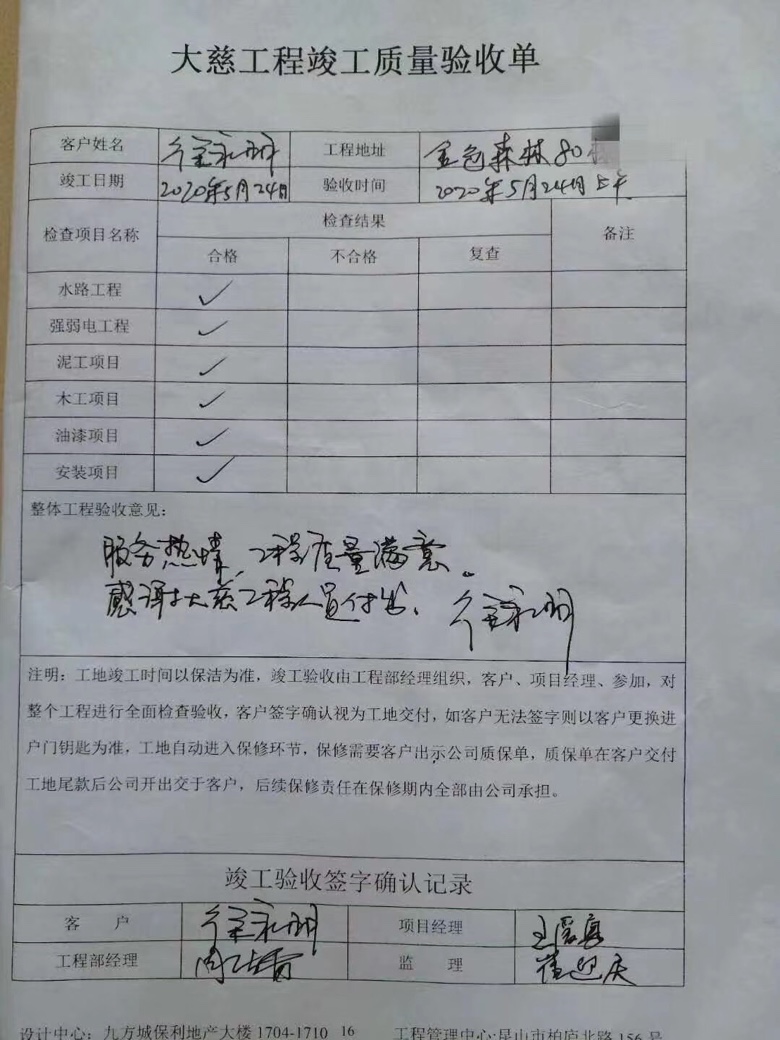 大慈工程竣工质量验收单
客户姓名 工程地址 金色森林80
竣工日期 2020年5月24日 验收时间 2020年5月24日上午
检查项目名称 检查结果 备注
合格 不合格 复查
水路工程 ✓
强弱电工程 ✓
泥工项目 ✓
木工项目 ✓
油漆项目 ✓
安装项目 ✓
整体工程验收意见:
服务热情,工程质量满意。
感谢大慈工程人员付出,
注明:工地竣工时间以保洁为准,竣工验收由工程部经理组织,客户、项目经理、参加,对
整个工程进行全面检查验收,客户签字确认视为工地交付,如客户无法签字则以客户更换进
户门钥匙为准,工地自动进入保修环节,保修需要客户出示公司质保单,质保单在客户交付
工地尾款后公司开出交于客户,后续保修责任在保修期内全部由公司承担。
竣工验收签字确认记录
客 户 项目经理
工程部经理 监 理
设计中心:九方城保利地产大楼1704-1710 16 工程管理中心:昆山市柏庐北路156号